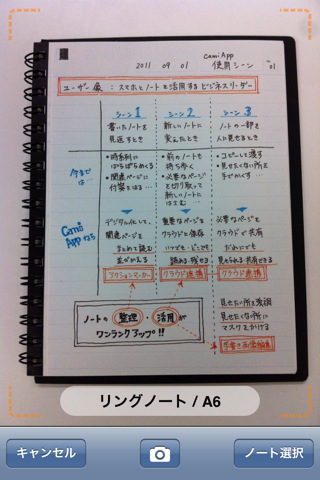 2011 09 01
CamiApp
使用シーン
No 01
ユーザー像 : スマホとノートを活用するビジネスリーダー
シーン1
書いたノートを
見返すとき
シーン2
新しいノートに
変えたとき
シーン3
ノートの一部を
人に見せるとき
今までは…
・時系列に
ぱらぱらめくる
・関連ページに
付箋をはる…
・前のノートも
持ち歩く
・必要なページ
を切り取って
新しいノートに
はさむ…
・コピーして渡す
・見せたくない所を
手でかくす…
CamiAppなら
デジタル化して、
関連ページを
まとめて読む
並びかえる
アクションマーカー
重要なページを
クラウドに保存
いつでも・どこでも
読める・残せる
クラウド連携
必要なページを
クラウドで共有
だれにでも
見せられる・共有できる
クラウド連携
見せたい所を強調
見せたくない所に
マスクをかける
手書き画像編集
ノートの 整理・活用 が
ワンランクアップ!!
リングノート / A6
キャンセル
ノート選択